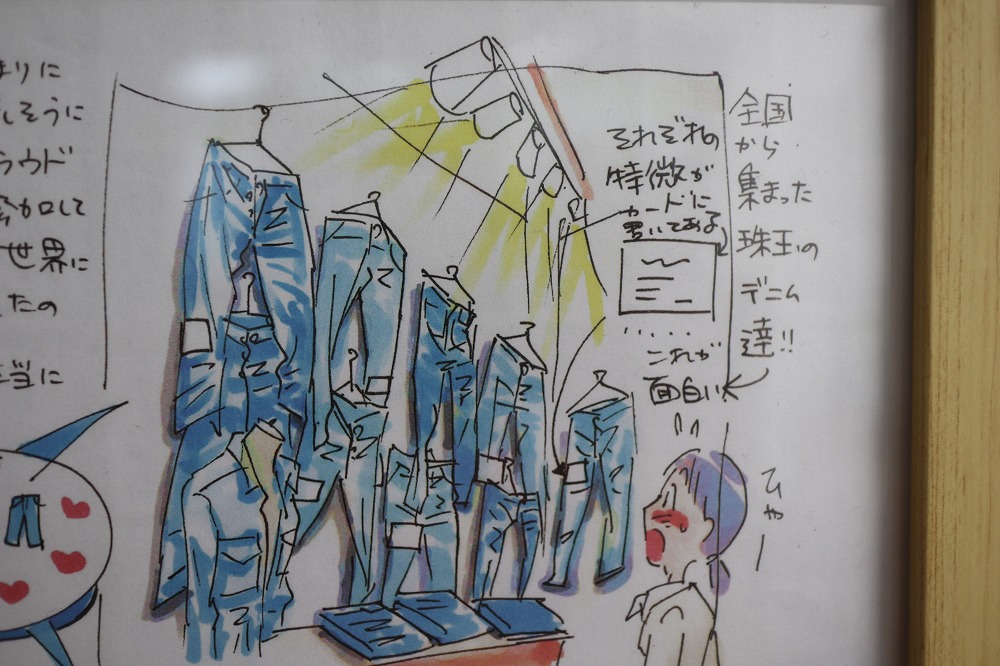 全国
から
集まった
珠玉の
デニム
達!!
それぞれの
特徴が
カードに
書いてある
これが
面白い
ひゃー
まりに
しそうに
ラウド
参加して
世界に
たの
当に